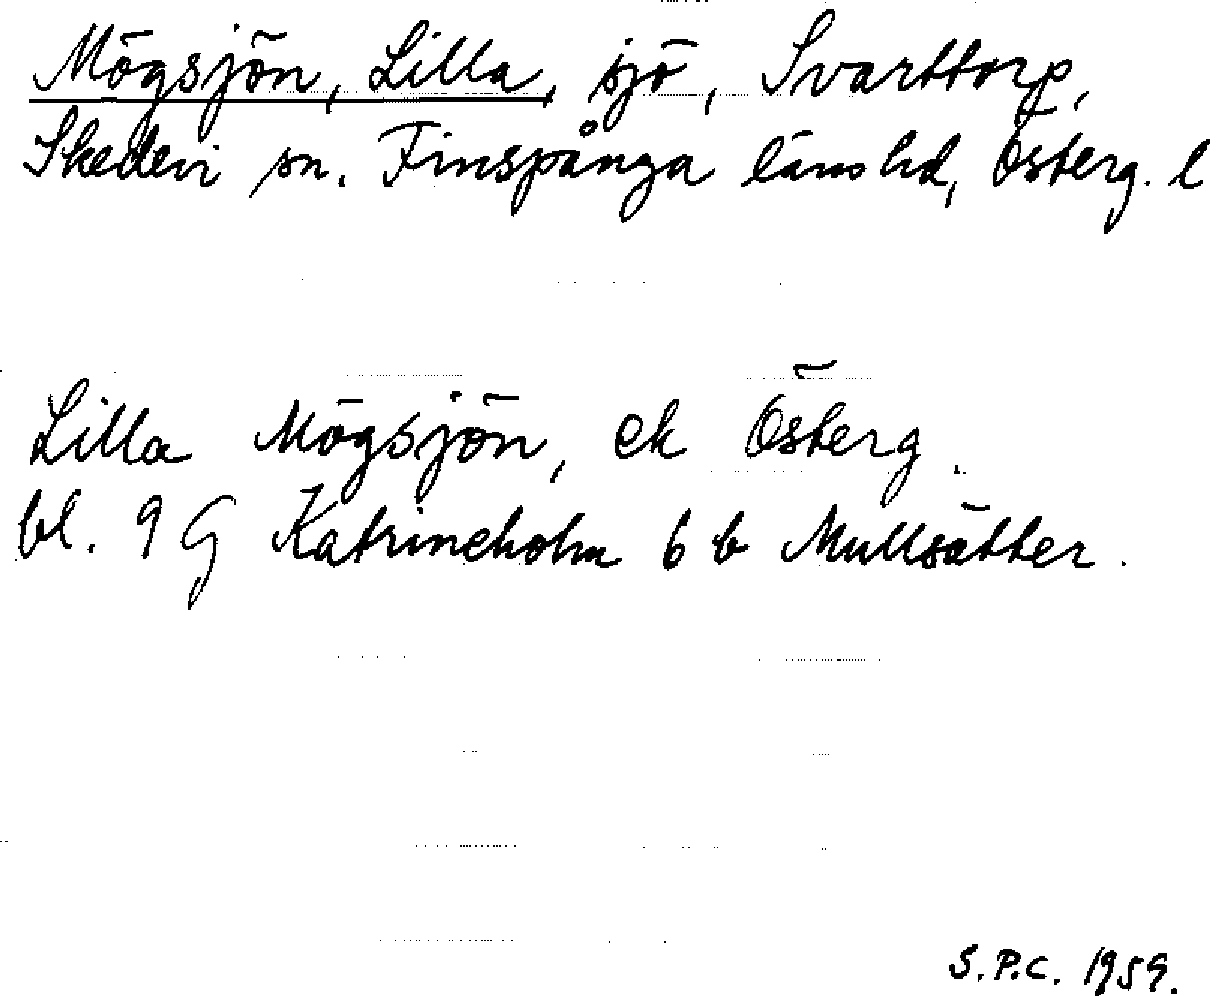 Mögsjön, Lilla, sjö, Svarttorp,
Skedevi sn. Finspånga läns hd, Österg. l
Lilla Mögsjön, ek Österg.
bl. 9 G Katrineholm 6 b Mullsätter.
S.P.C. 1959.